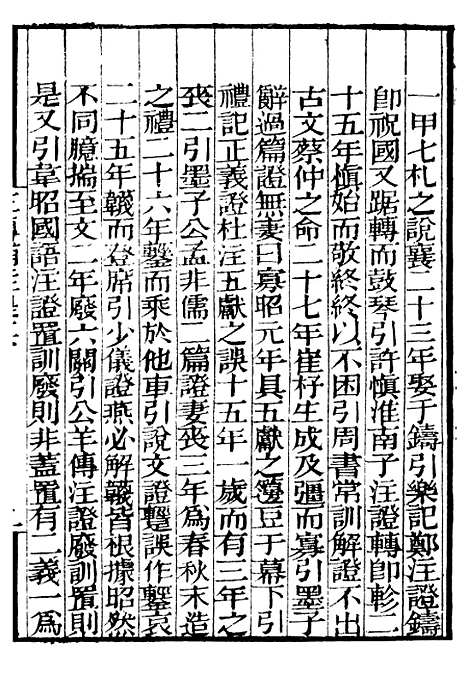 一甲七札之說襄二十三年娶于鑄引樂記鄭注證鑄
卽祝國又踞轉而鼓琴引許愼淮南子注證轉卽軫二
十五年愼始而敬終終以不困引周書常訓解證不出
古文蔡仲之命二十七年崔杼生成及彊而寡引墨子
辭過篇證無妻曰寡昭元年具五獻之籩豆于幕下引
禮記正義證杜注五獻之誤十五年一歲而有三年之
喪二引墨子公孟非儒二篇證妻喪三年爲春秋末造
之禮二十六年鑋而乘於他車引說文證鑋誤作鑋哀
二十五年韤而登席引少儀證燕必解韤皆根據昭然
不同臆揣至文二年廢六關引公羊傳注證廢訓置則
是又引韋昭國語注證置訓廢則非蓋置有二義一爲